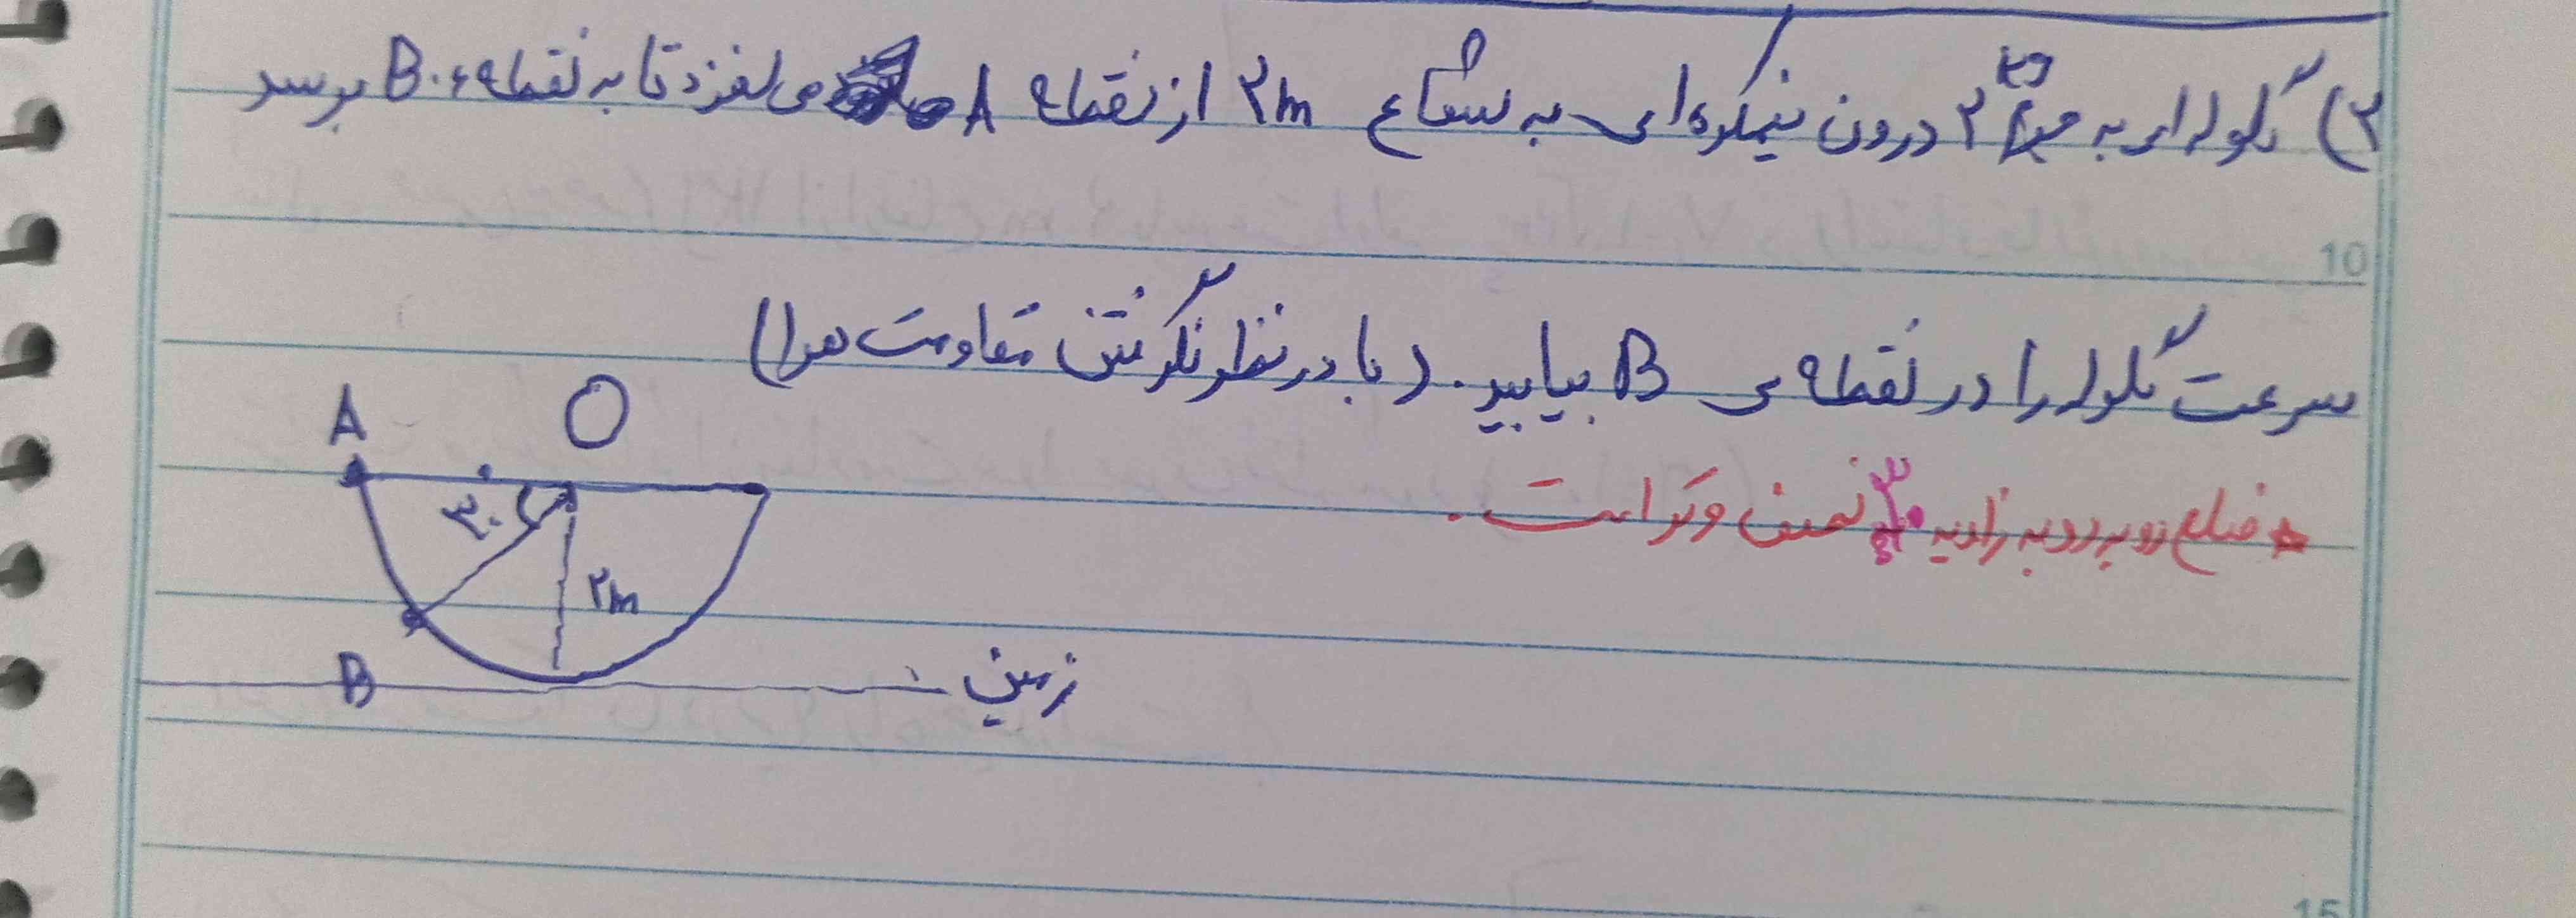 ۳) گلوله ای به جرم ۲ kg درون نیمکره ای به شعاع ۲m از نقطه A می لغزد تا به نقطه ء B برسد
10
سرعت گلوله را در نقطه ی B بیابید. (با در نظر نگرفتن مقاومت هوا)
* ضلع روبه رو به زاویه ۳۰ نصف وتر است.
A O
۳۰
۲m
B
زمین
15